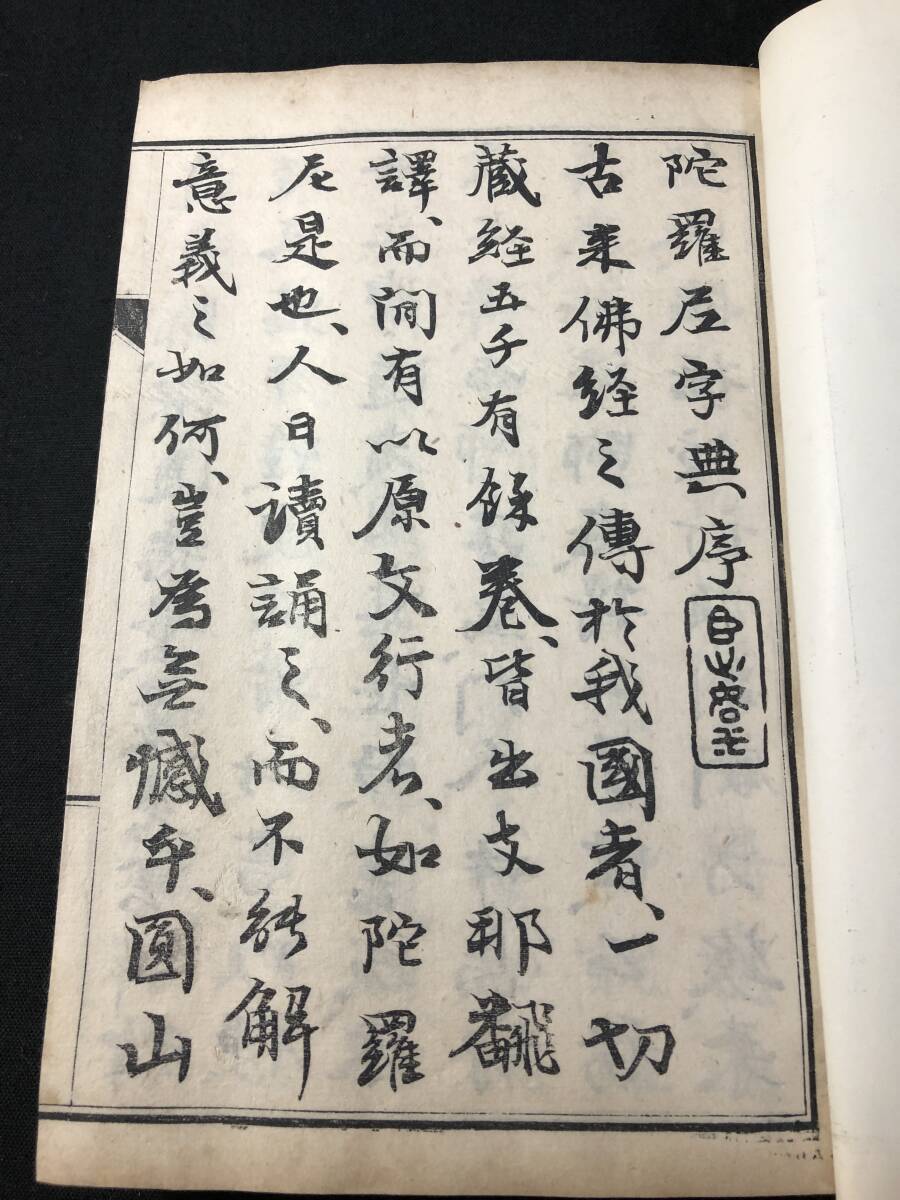 陀羅尼字典序
古来佛経之傳於我國者、一切
蔵経五千有餘卷、皆出支那飜
譯、而間有以原文行者、如陀羅
尼是也、人日讀誦之、而不能解
意義之如何、豈為無憾乎、圓山